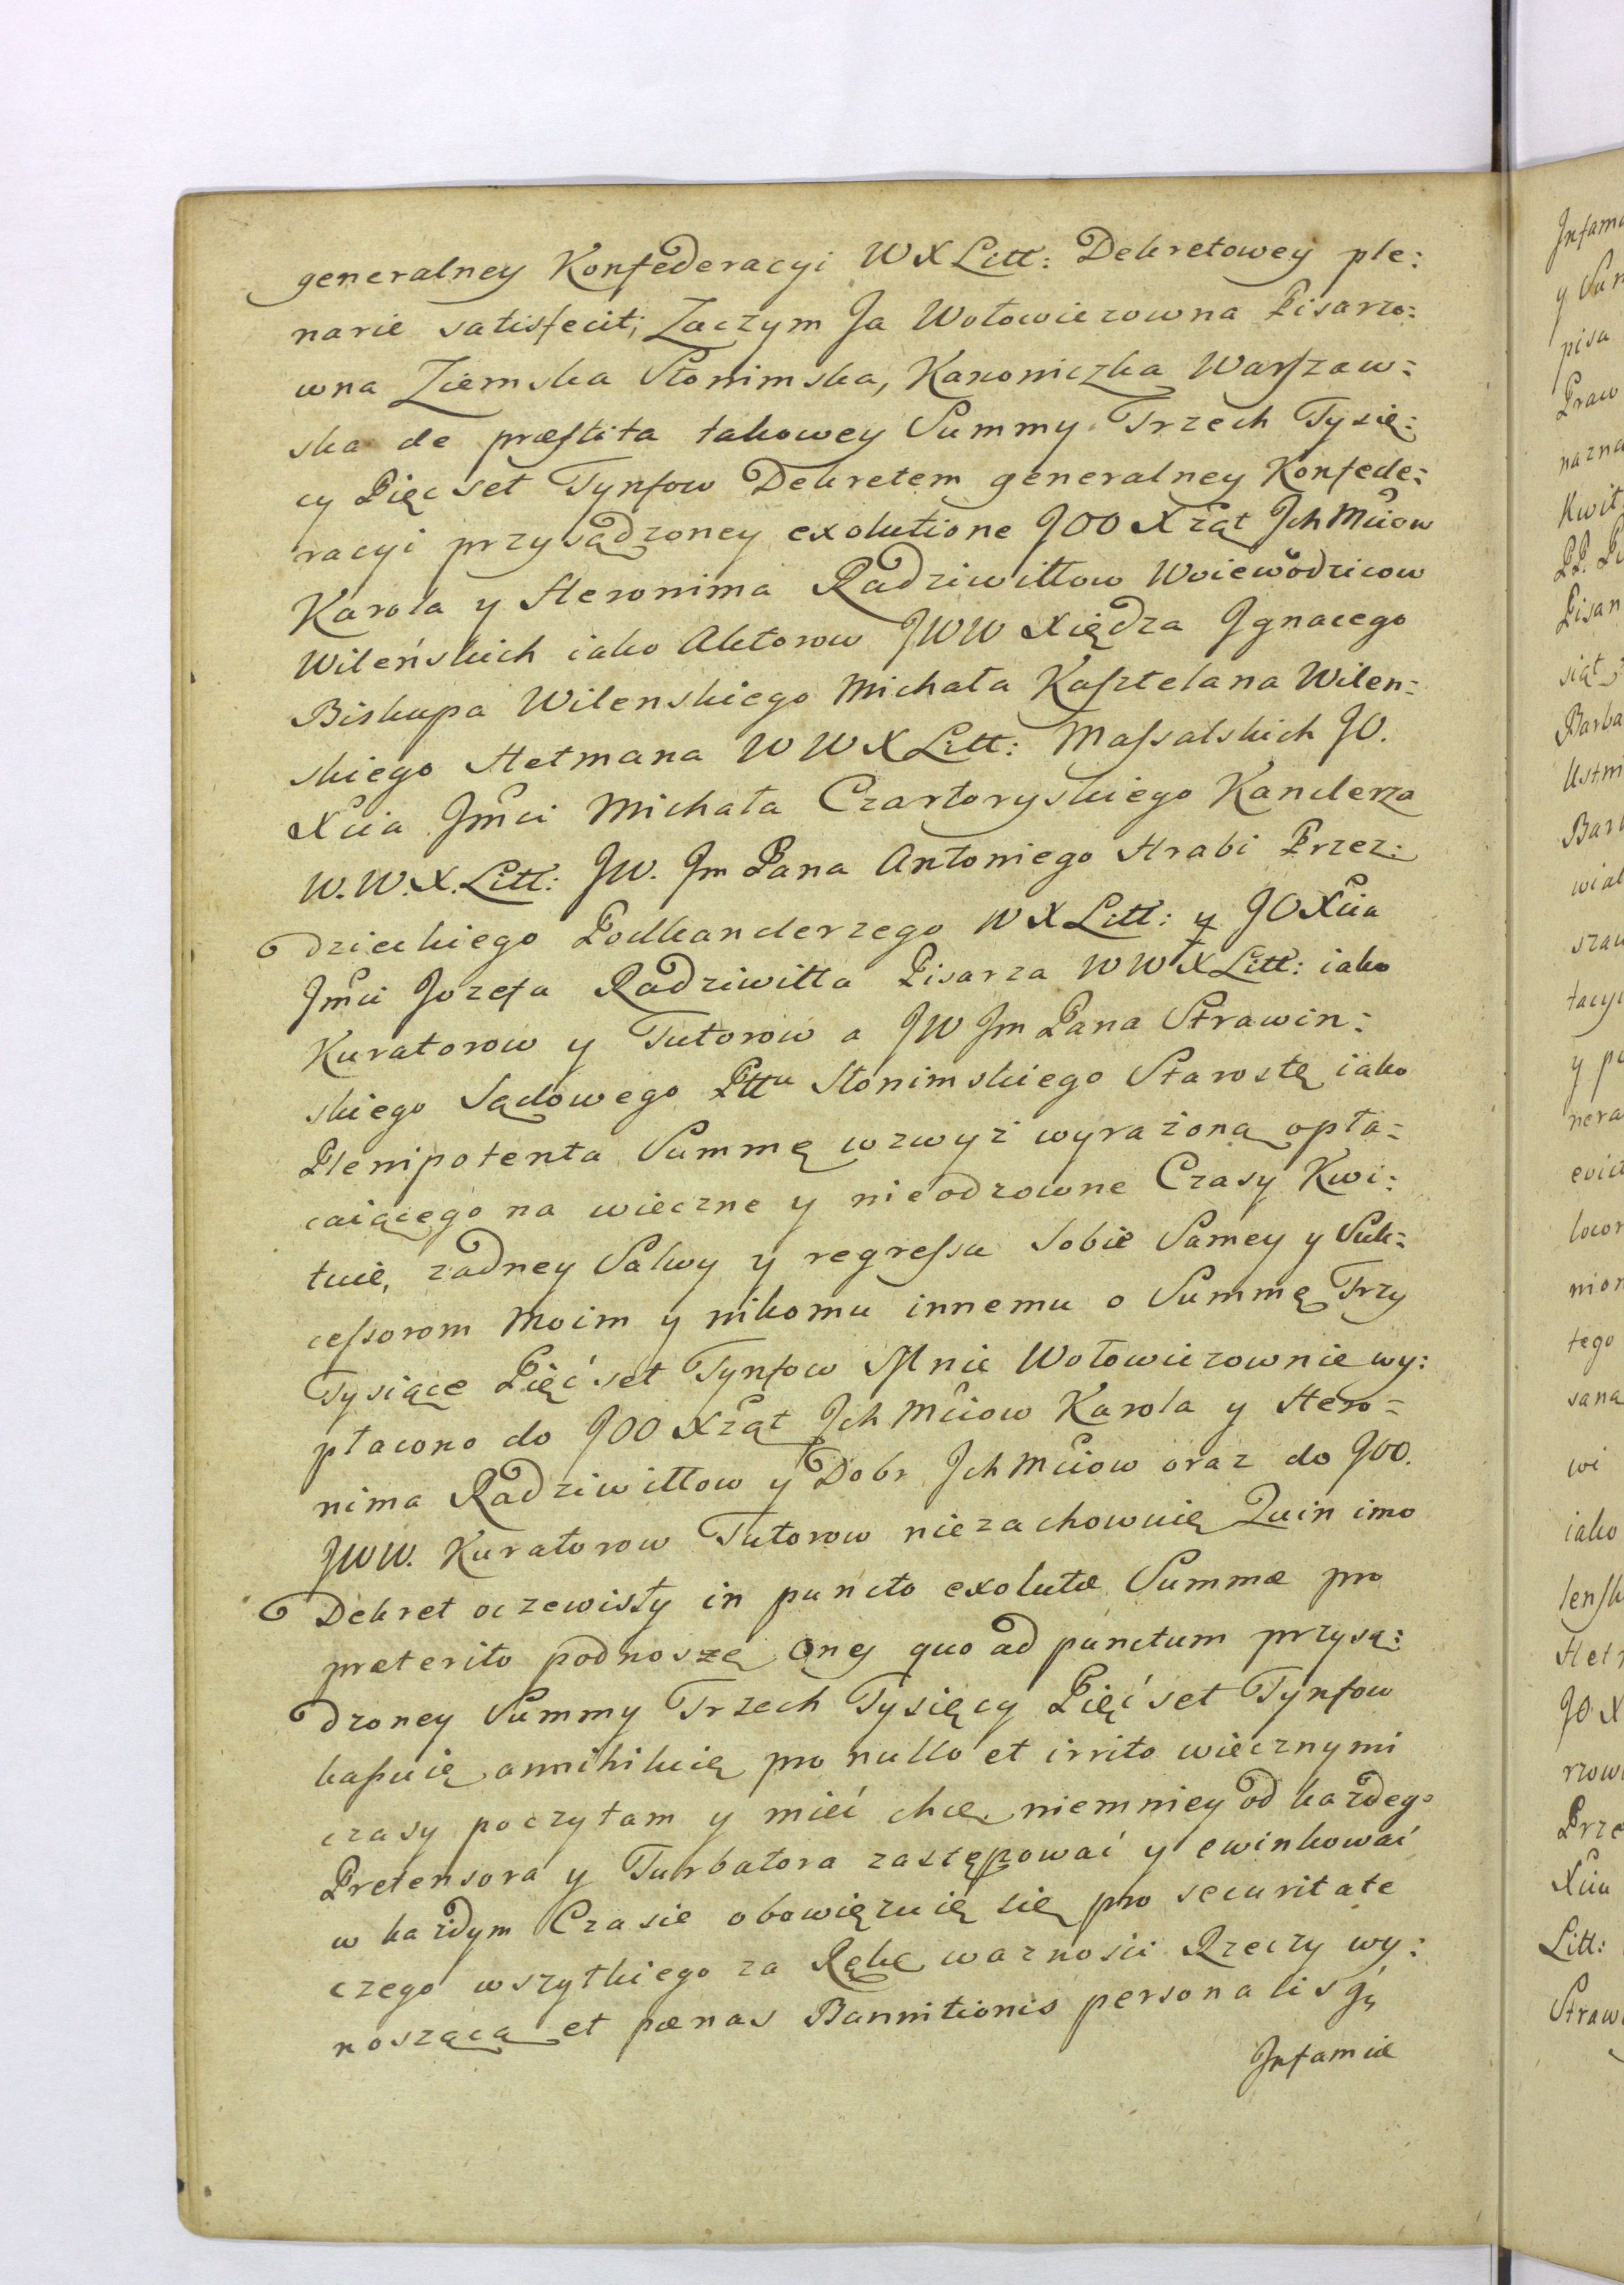 generalney Konfederacyi WXLitt: Dekretowey ple:
narie satisfecit; Zaczym Ja Wołowiczowna Pisarzo:
wna Ziemska Słonimska, Kanoniczka Warszaw:
ska de præstita takowey Summy Trzech Tysię:
cy Pięc set Tynfow Dekretem generalney Konfede:
racyi przysądzoney exolutione JOO Xżąt Ich Mciow
Karola y Heronima Radziwiłłow Woiewodzicow
Wileńskich iako Aktorow JWW Xiędza Ignacego
Biskupa Wilenskiego Michała Kasztelana Wilen:
skiego Hetmana WWXLitt: Massalskich JO.
Xcia Jmci Michała Czartoryskiego Kanclerza
W.W.X.Litt: JW. Jm Pana Antoniego Hrabi Przez:
dzieckiego Podkanclerzego WXLitt: y JOXcia
Jmci Jozefa Radziwiłła Pisarza WWXLitt: iako
Kuratorow y Tutorow a JW Jm Pana Strawin:
skiego Sądowego Pttu Słonimskiego Starostę iako
Plenipotenta Summę wzwyż wyrażoną opła:
caiącego na wieczne y nieodzowne Czasy Kwi:
tuię, żadney Salwy y regressu Sobie Samey y Suk:
cessorom Moim y nikomu innemu o Summę Trzy
Tysiące Pięć set Tynfow Mnie Wołowiczownie wy:
płacono do JOO Xżąt Ich Mciow Karola y Hero:
nima Radziwiłłow y Dobr Ich Mciow oraz do JOO.
JWW. Kuratorow Tutorow niezachowuię Quin imo
Dekret oczewisty in puncto exolutæ Summæ pro
præterito podnoszę Oney quo ad punctum przysą:
dzoney Summy Trzech Tysięcy Pięć set Tynfow
kassuię annihiluię pro nullo et irrito wiecznymi
czasy poczytam y mieć chcę niemniey od każdego
Pretensora y Turbatora zastępować y ewinkować
w każdym Czasie obowięzuię się pro securitate
czego wszytkiego za Rękę ważność Rzeczy wy:
noszącą et pænas Bannitionis personalis
Infamiæ